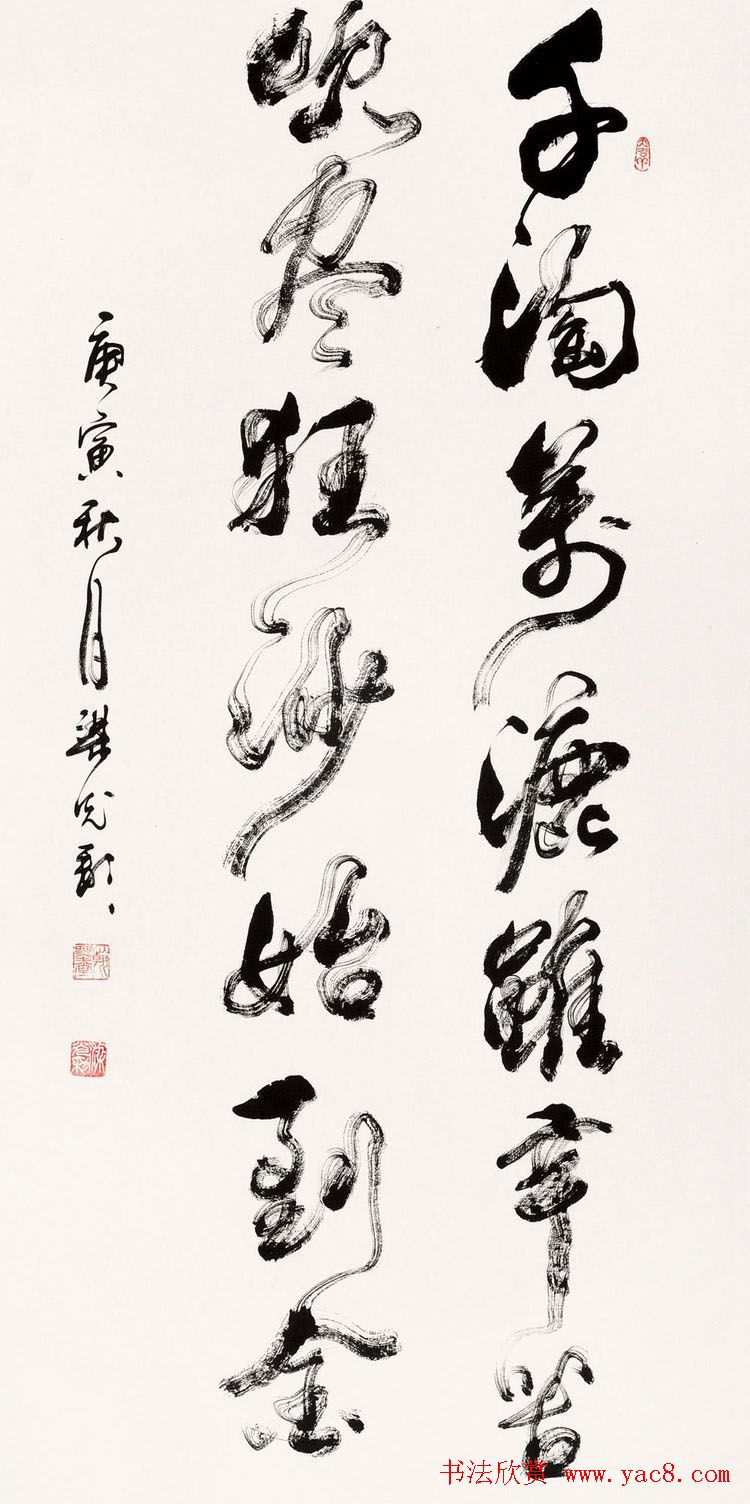 千淘萬漉雖辛苦
吹盡狂沙始到金
庚寅秋月梁
书法欣赏 www.yac8.com